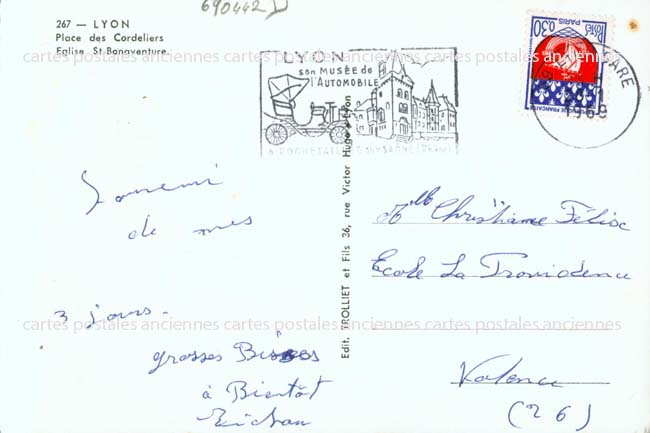 690442
267 — LYON
Place des Cordeliers
Eglise St-Bonaventure
LYON
son MUSÉE de
l'AUTOMOBILE
ROCHETAILLÉE sur SAÔNE (Rhône)
POSTES
0,30
PARIS
REPUBLIQUE FRANÇAISE
GARE
1969
Souvenir
de mes
3 jours.
grosses Bises
à Bientôt
Edit. TROLLIET et Fils 36, rue Victor Hugo - Lyon
Mlle Christiane Félix
Ecole La Providence
Valence
(26)
cartes postales anciennes cartes postales anciennes cartes postales anciennes
cartes postales anciennes cartes postales anciennes cartes postales anciennes
cartes postales anciennes cartes postales anciennes cartes postales anciennes